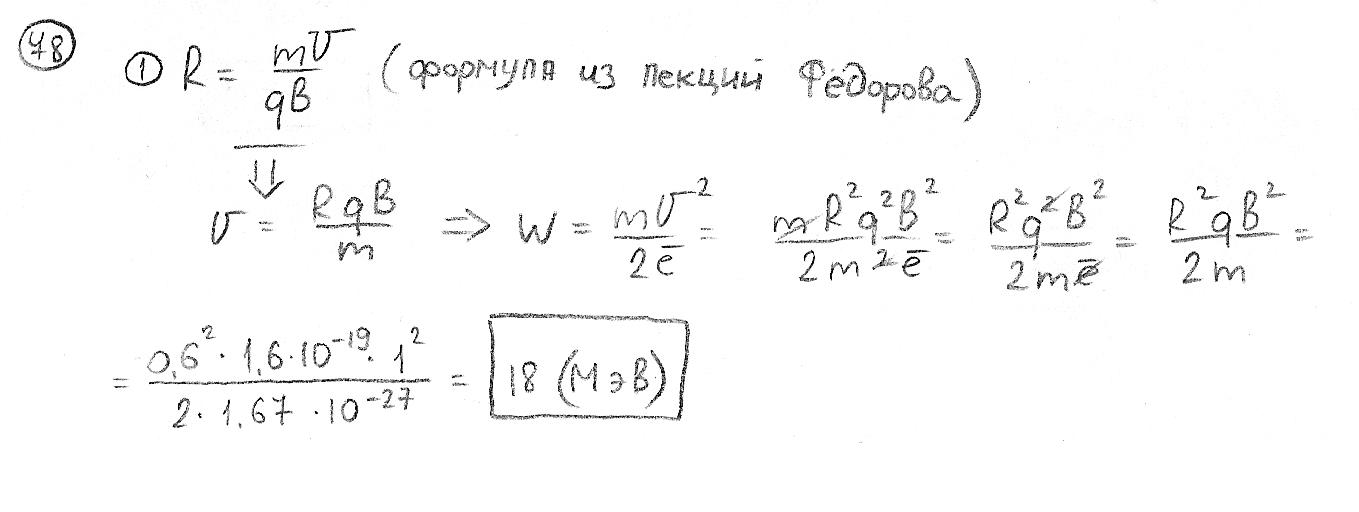 78
① R = mv/qB (формула из лекций Фёдорова)
⇓
v = RqB/m ⇒ W = mv²/2ē = mR²q²B²/2m²ē = R²q²B²/2mē = R²qB²/2m =
= 0,6² · 1,6 · 10⁻¹⁹ · 1²/2 · 1,67 · 10⁻²⁷ = 18 (МэВ)